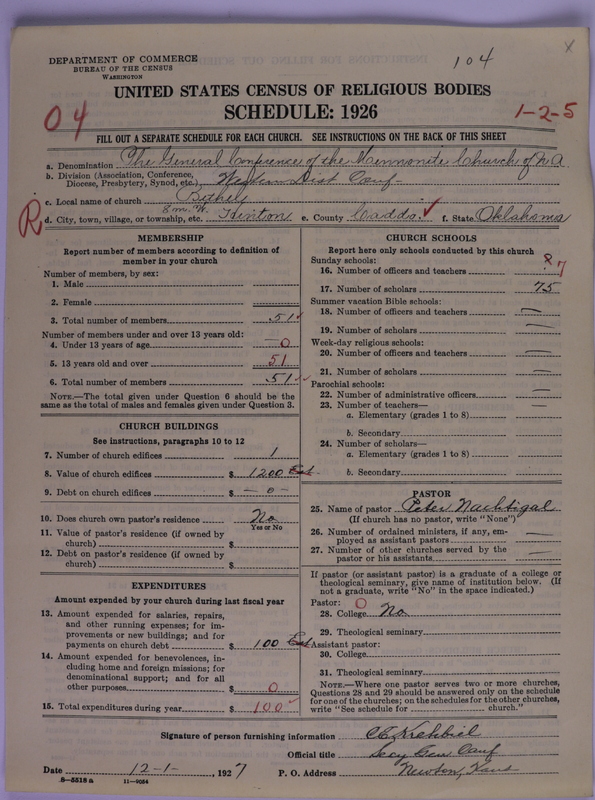 104
x
DEPARTMENT OF COMMERCE
BUREAU OF THE CENSUS
WASHINGTON
UNITED STATES CENSUS OF RELIGIOUS BODIES
SCHEDULE: 1926
04
1-2-5
FILL OUT A SEPARATE SCHEDULE FOR EACH CHURCH. SEE INSTRUCTIONS ON THE BACK OF THIS SHEET
a. Denomination The General Conference of the Mennonite Church of N A
b. Division (Association, Conference, Diocese, Presbytery, Synod, etc.) Western Dist Conf-
c. Local name of church Bethel
R
d. City, town, village, or township, etc. 8 m. W. Hinton e. County Caddo ✓ f. State Oklahoma
MEMBERSHIP
Report number of members according to definition of
member in your church
Number of members, by sex:
1. Male
2. Female
3. Total number of members 51 ✓
Number of members under and over 13 years old:
4. Under 13 years of age 0
5. 13 years old and over 51
6. Total number of members 51 ✓
NOTE.—The total given under Question 6 should be the
same as the total of males and females given under Question 3.
CHURCH BUILDINGS
See instructions, paragraphs 10 to 12
7. Number of church edifices 1
8. Value of church edifices $ 1200 Est
9. Debt on church edifices $ — 0 —
10. Does church own pastor's residence No
Yes or No
11. Value of pastor's residence (if owned by
church) $
12. Debt on pastor's residence (if owned by
church) $
EXPENDITURES
Amount expended by your church during last fiscal year
13. Amount expended for salaries, repairs,
and other running expenses; for im-
provements or new buildings; and for
payments on church debt $ 100 Est
14. Amount expended for benevolences, in-
cluding home and foreign missions; for
denominational support; and for all
other purposes $ 0
15. Total expenditures during year $ 100 ✓
CHURCH SCHOOLS
Report here only schools conducted by this church
Sunday schools:
16. Number of officers and teachers 8 7
17. Number of scholars 75
Summer vacation Bible schools:
18. Number of officers and teachers —
19. Number of scholars —
Week-day religious schools:
20. Number of officers and teachers —
21. Number of scholars —
Parochial schools:
22. Number of administrative officers —
23. Number of teachers—
a. Elementary (grades 1 to 8) —
b. Secondary —
24. Number of scholars—
a. Elementary (grades 1 to 8) —
b. Secondary —
PASTOR
25. Name of pastor Peter Nachtigal
(If church has no pastor, write "None")
26. Number of ordained ministers, if any, em-
ployed as assistant pastors —
27. Number of other churches served by the
pastor or his assistants —
If pastor (or assistant pastor) is a graduate of a college or
theological seminary, give name of institution below. (If
not a graduate, write "No" in the space indicated.)
Pastor: 0
28. College No
29. Theological seminary
Assistant pastor:
30. College
31. Theological seminary
NOTE.—Where one pastor serves two or more churches,
Questions 28 and 29 should be answered only on the schedule
for one of the churches; on the schedules for the other churches,
write "See schedule for church."
Signature of person furnishing information C E Krehbiel
Official title Secy Gen Conf
Date 12-1- , 1927 P. O. Address Newton, Kans
8-5518 a 11-9054